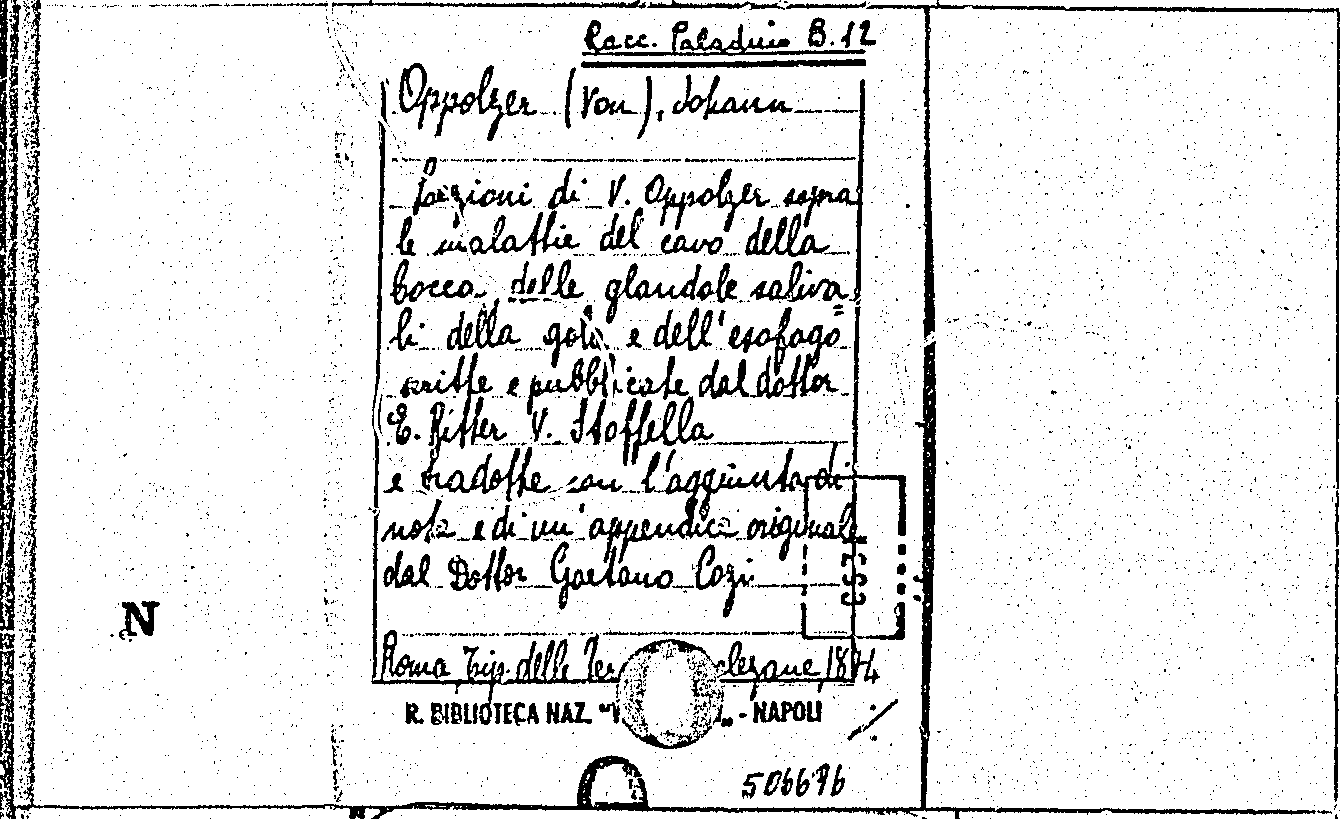 Racc. Paladino B.12
Oppolzer (Von), Johann
Lezioni di V. Oppolzer sopra
le malattie del cavo della
bocca, delle glandole saliva=
li della gola e dell'esofago
scritte e pubblicate dal dottor
E. Ritter V. Stoffella
e tradotte con l'aggiunta di
note e di un'appendice originale
dal Dottor Gaetano Cozi
N
Roma, Tip. delle Ter clezane, 18
R. BIBLIOTECA NAZ. " „ - NAPOLI
506696